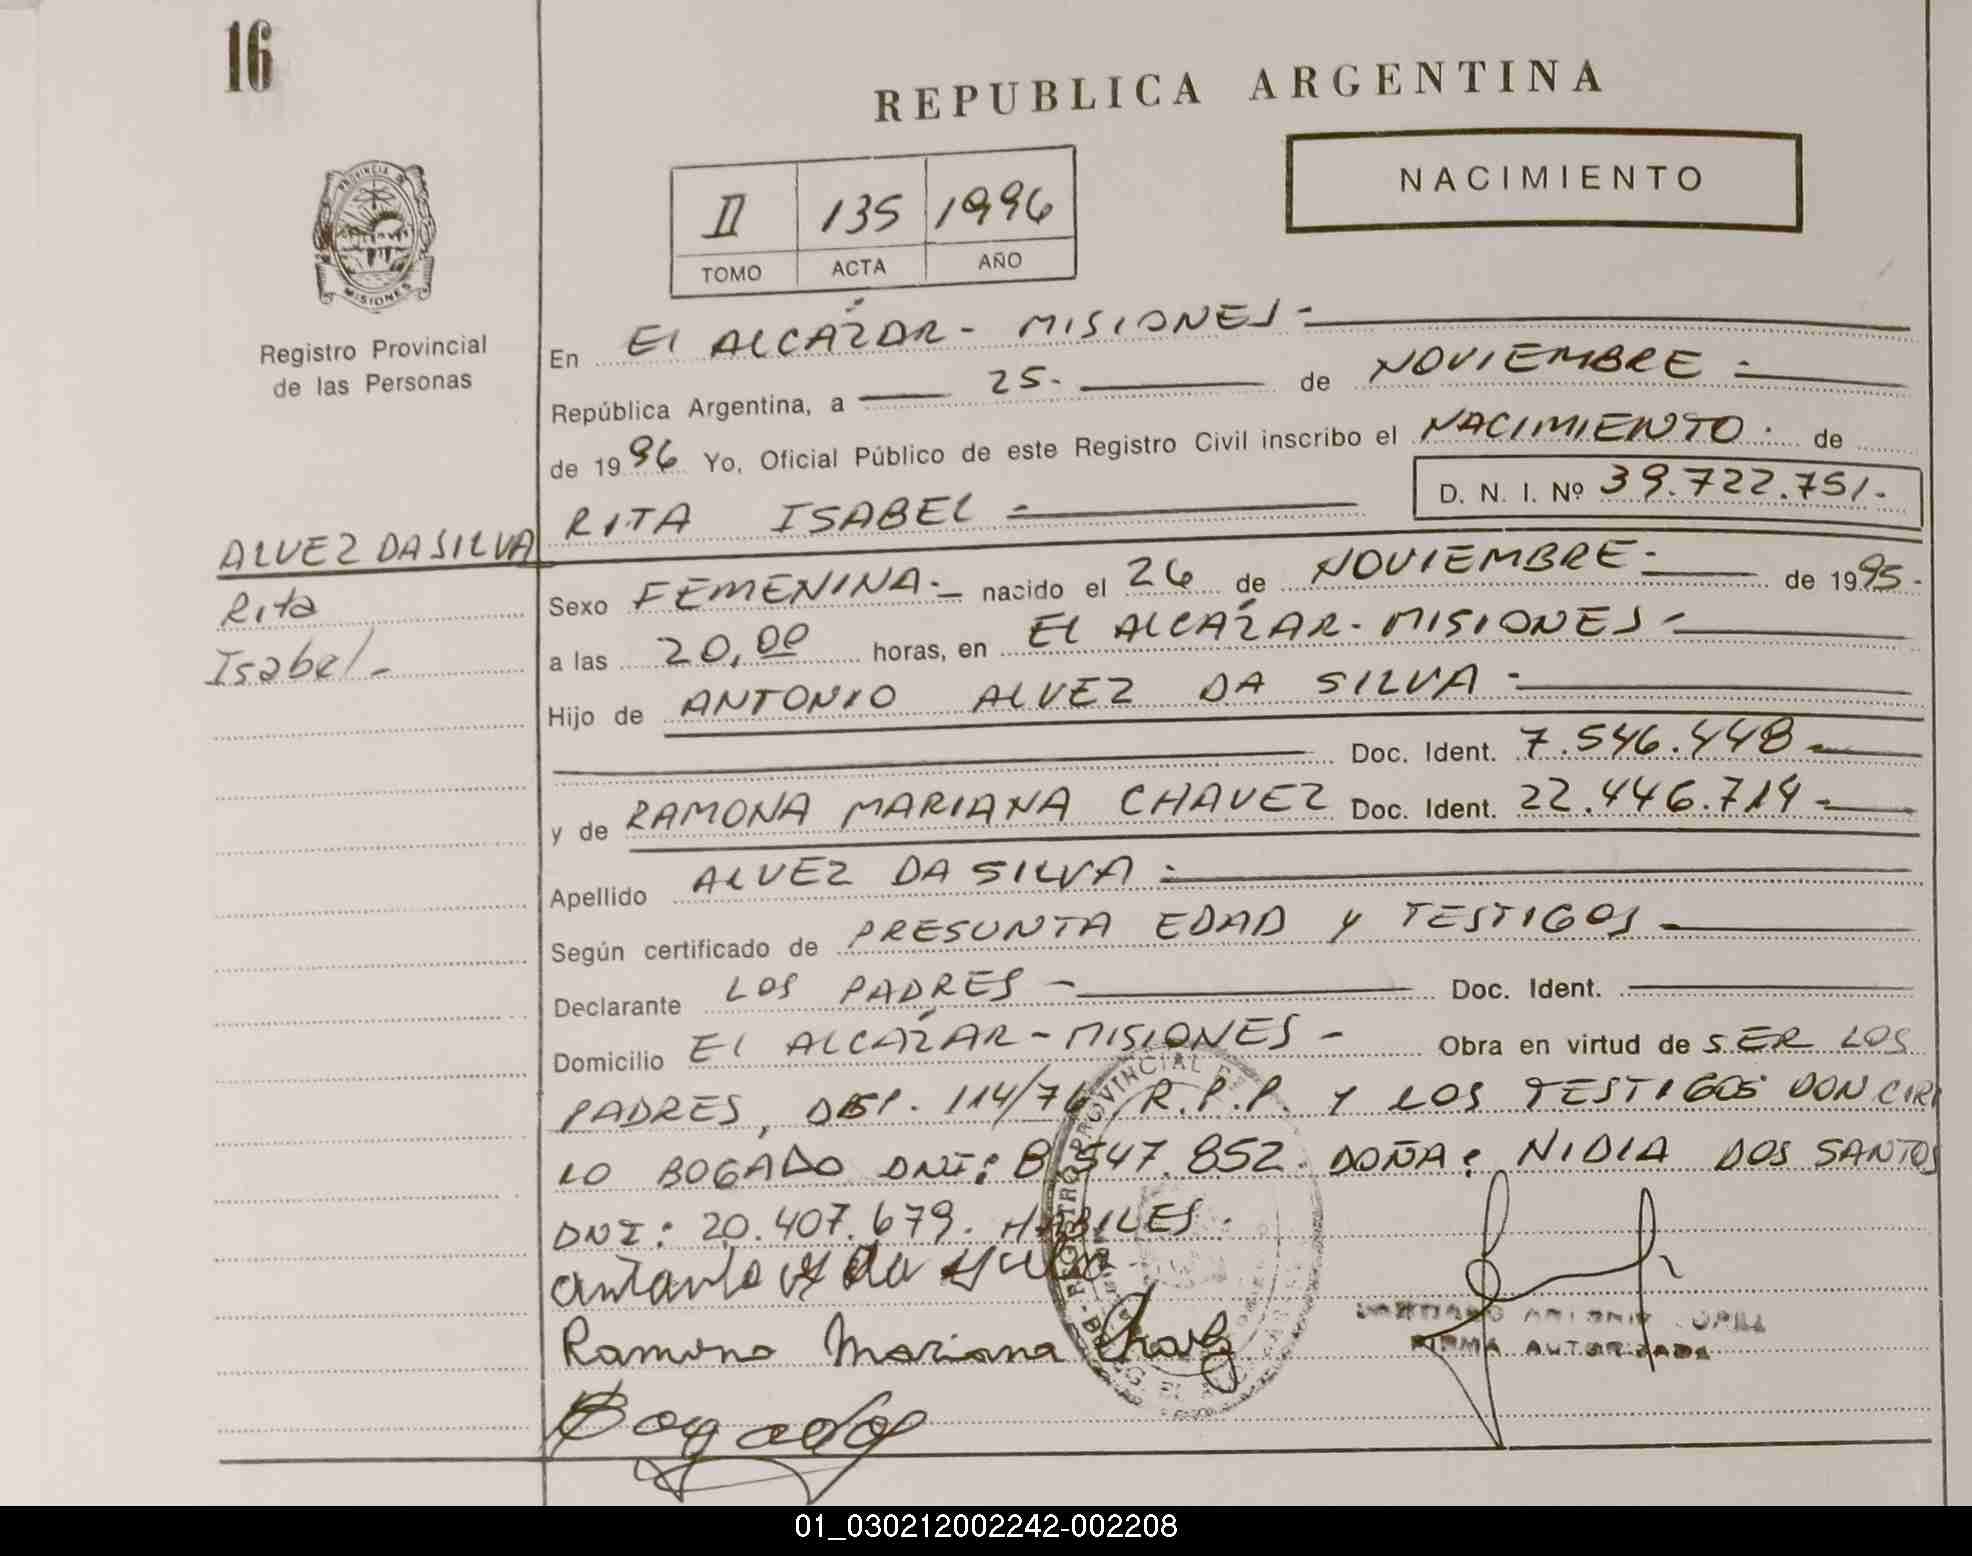 16
REPUBLICA ARGENTINA
NACIMIENTO
II 135 1996
TOMO ACTA AÑO
PROVINCIA DE
MISIONES
Registro Provincial
de las Personas
En El ALCAZAR - MISIONES -
República Argentina, a 25 - de NOVIEMBRE -
de 1996 Yo, Oficial Público de este Registro Civil inscribo el NACIMIENTO . de
RITA ISABEL - D. N. I. Nº 39.722.751.-
ALVEZ DA SILVA
Rita
Isabel -
Sexo FEMENINA - nacido el 26 de NOVIEMBRE - de 1995 -
a las 20,00 horas, en El ALCÁZAR - MISIONES -
Hijo de ANTONIO ALVEZ DA SILVA -
Doc. Ident. 7.546.448 -
y de RAMONA MARIANA CHAVEZ Doc. Ident. 22.446.714 -
Apellido ALVEZ DA SILVA -
Según certificado de PRESUNTA EDAD y TESTIGOS -
Declarante LOS PADRES - Doc. Ident.
Domicilio El ALCAZAR - MISIONES - Obra en virtud de SER LOS
PADRES, DISP. 114/76 R.P.P. Y LOS TESTIGOS DON CIRI
LO BOGADO DNI: 8.547.852. DOÑA: NIDIA DOS SANTOS
DNI: 20.407.679. HABILES.
Ramona Mariana Chavez
Bogado
REGISTRO PROVINCIAL
FIRMA AUTORIZADA
01_030212002242-002208